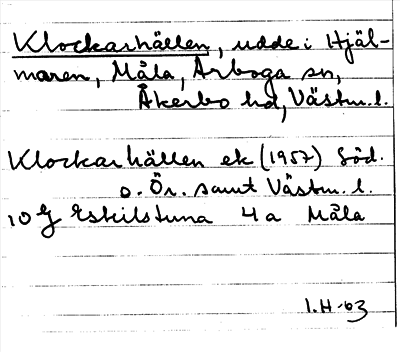 Klockarhällen, udde i Hjäl-
maren, Måla, Arboga sn,
Åkerbo hd, Västm. l.
Klockarhällen ek (1957) Söd.
o. Ör. samt Västm. l.
10 G Eskilstuna 4 a Måla
I.H-63